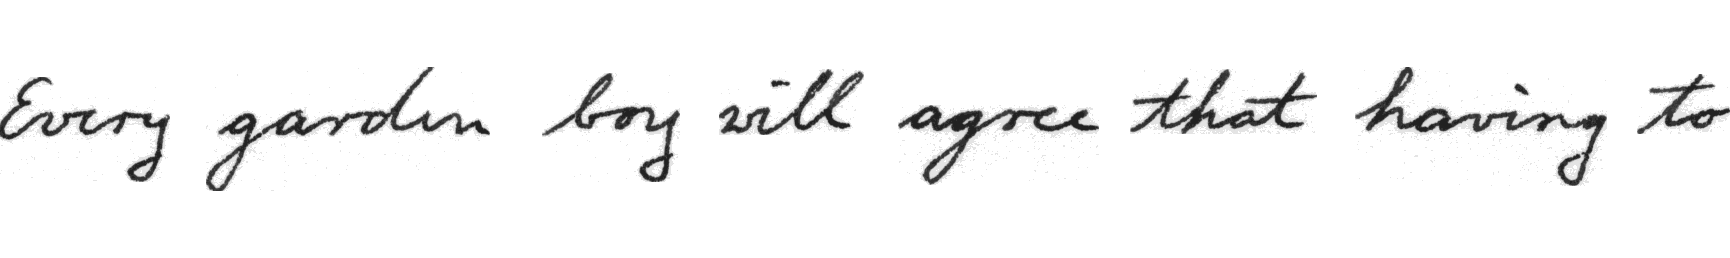 Every garden boy will agree that having to